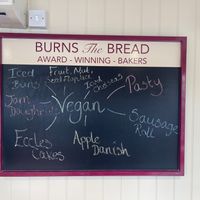 BURNS The BREAD
AWARD - WINNING - BAKERS
Iced
Buns
Fruit, Nut,
Seed Flapjack
Iced
Pasty
Jam
Doughnut
Vegan
Sausage
Roll
Eccles
Cakes
Apple
Danish